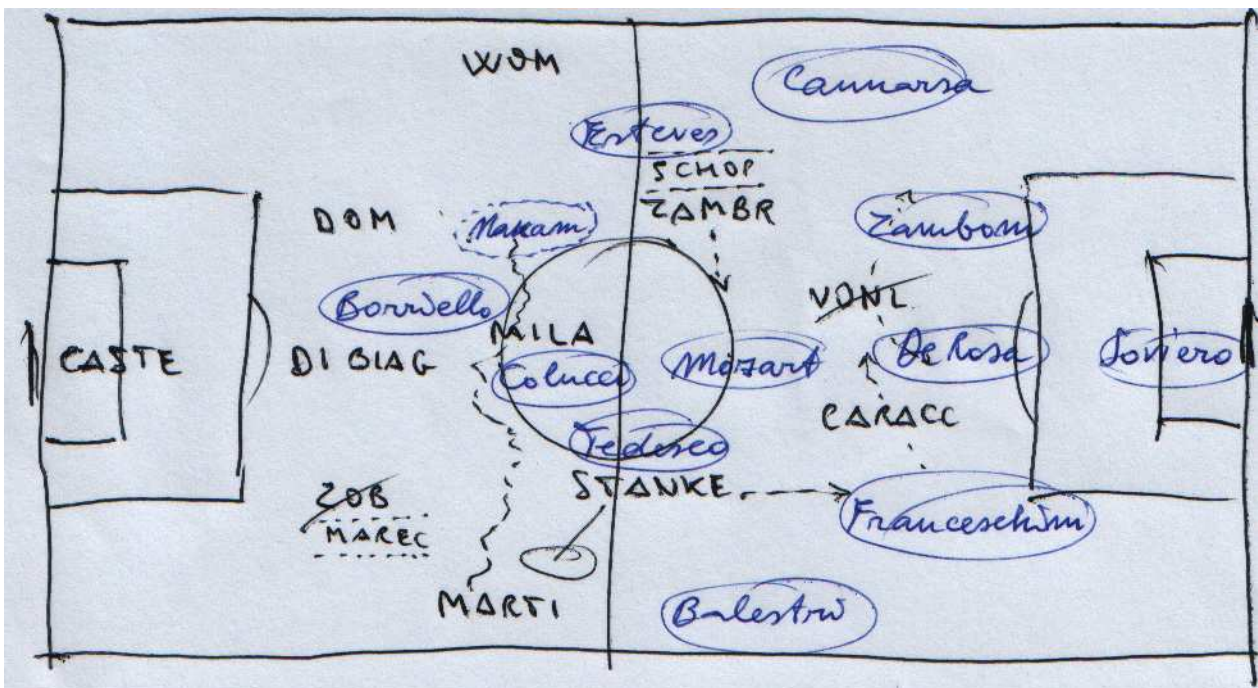 WOM
Cannarsa
Esteves
SCHOP
ZAMBR
DOM
Zamboni
Borriello
VONL
MILA
CASTE
DI BIAG
Colucci
Mozart
De Rosa
Soviero
CARACC
Tedesco
STANKE
ZOB
MAREC
Franceschini
MARTI
Balestri